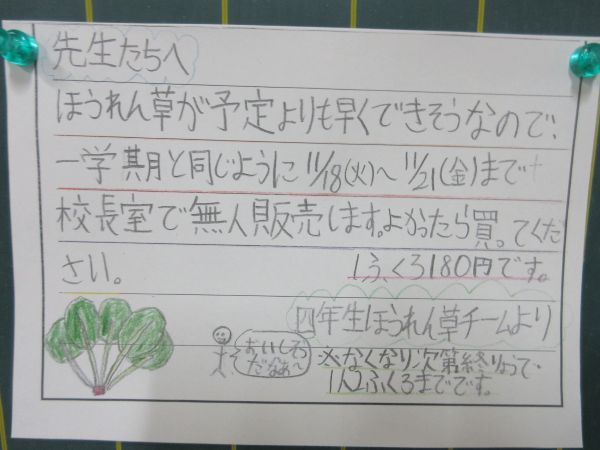 先生たちへ
ほうれん草が予定よりも早くできそうなので、
一学期と同じように11/18(火)～11/21(金)まで
校長室で無人販売します。よかったら買ってくだ
さい。
1ふくろ180円です。
四年生ほうれん草チームより
おいしそう
だなぁ～
※なくなり次第終りなので、
1人2ふくろまでです。